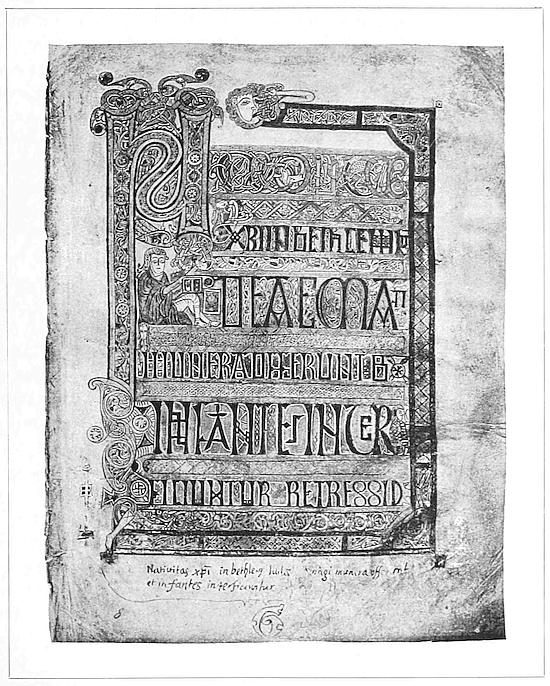 XPI IN BETHLEM
UDEAE MA
MUNERA OFFERUNT
INFANTES INTER
FICIUNTUR REGRESSIO
Nativitas xpi in bethlem magi munera
et infantes interficiuntur
8